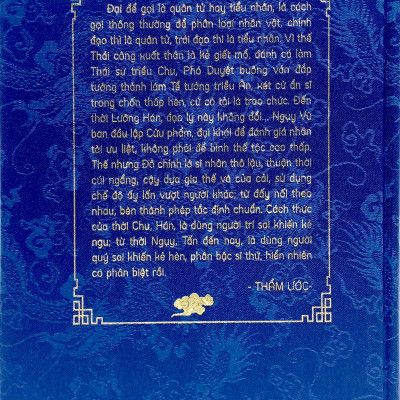 Đại để gọi là quân tử hay tiểu nhân, là cách
gọi thông thường để phân loại nhân vật, chính
đạo thì là quân tử, trái đạo thì là tiểu nhân. Vì thế
Thái công xuất thân là kẻ giết mổ, đánh cá làm
Thái sư triều Chu, Phó Duyệt buông ván đắp
tường thành làm Tể tướng triều Ân, xét cử ẩn sĩ
trong chốn thấp hèn, cứ có tài là trao chức. Đến
thời Lưỡng Hán, đạo lý này không đổi... Ngụy Vũ
ban đầu lập Cửu phẩm, đại khái để đánh giá nhân
tài ưu liệt, không phải để bình thế tộc cao thấp.
Thế nhưng Đô chính là sĩ nhân thô lậu, thuận thời
cúi ngẩng, cậy dựa gia thế và của cải, sử dụng
chế độ ấy lấn vượt người khác; từ đấy nối theo
nhau, bèn thành phép tắc định chuẩn. Cách thức
của thời Chu, Hán, là dùng người trí sai khiến kẻ
ngu; từ thời Ngụy, Tấn đến nay, là dùng người
quý sai khiến kẻ hèn, phân bậc sĩ thứ, hiển nhiên
có phân biệt rồi.
- THẨM ƯỚC-